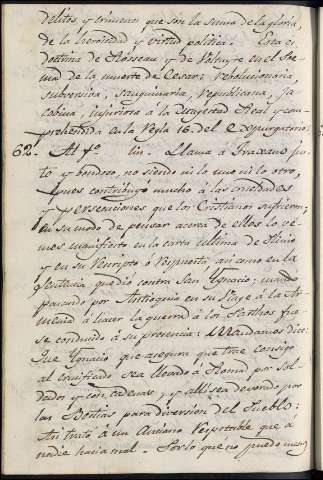 delitos y crimenes que son la senda de la gloria,
de la heroicidad y virtud politica. Esta es
doctrina de Rosseau y de Voltayre en el Poe
ma de la muerte de Cesar; revolucionaria,
subversiva, sanguinaria, republicana, ja
cobina, injuriosa á la Magestad Real y com-
prehendida en la Regla 16. del Expurgatorio.
62. Al fº lin. Llama á Traxano jus
to y bondoso, no siendo ni lo uno ni lo otro,
pues contribuyo mucho á las crueldades
y persecuciones que los Cristianos sufrieron;
su modo de pensar acerca de ellos lo ve
mos manifiesto en la carta ultima de Plinio
y en su Rescripto ó respuesta, asi como en la
Sentencia que dió contra San Ygnacio; cuando
pasando por Antioquia en su viage á la Ar
menia á hacer la guerra á los Parthos fue
se conducido á su presencia: Mandamos dice
Que Ygnacio que asegura que trae consigo
al crucificado sea llevado á Roma por Sol
dados y con cadenas y alli sea devorado por
las Bestias para diversion del Pueblo:
Asi trató á un Anciano respetable que á
nadie hacia mal. Por lo que no puedo menos